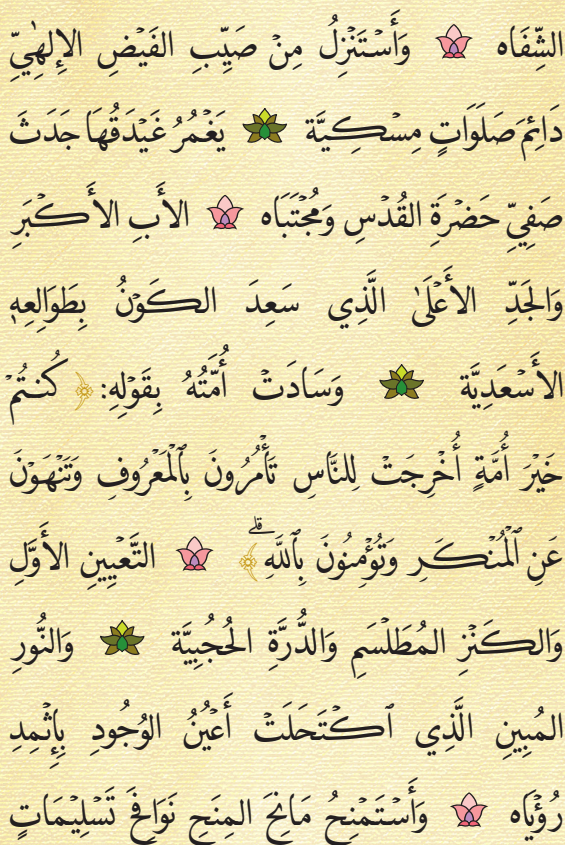 الشِّفَاه وَأَسْتَنْزِلُ مِنْ صَيِّبِ الفَيْضِ الإِلهِيِّ
دَائِمَ صَلَوَاتٍ مِسْكِيَّة يَغْمُرُ غَيْدَقُهَا جَدَثَ
صَفِيِّ حَضْرَةِ القُدْسِ وَمُجْتَبَاه الأَبِ الأَكْبَرِ
وَالجَدِّ الأَعْلَىٰ الَّذِي سَعِدَ الكَوْنُ بِطَوَالِعِهِ
الأَسْعَدِيَّة وَسَادَتْ أُمَّتُهُ بِقَوْلِهِ: ﴿كُنتُمْ
خَيْرَ أُمَّةٍ أُخْرِجَتْ لِلنَّاسِ تَأْمُرُونَ بِٱلْمَعْرُوفِ وَتَنْهَوْنَ
عَنِ ٱلْمُنْكَرِ وَتُؤْمِنُونَ بِٱللَّهِ ۗ﴾ التَّعْيِينِ الأَوَّلِ
وَالكَنْزِ المُطَلْسَمِ وَالدُّرَّةِ الحُجُبِيَّة وَالنُّورِ
المُبِينِ الَّذِي ٱكْتَحَلَتْ أَعْيُنُ الوُجُودِ بِإِثْمِدِ
رُؤْيَاه وَأَسْتَمْنِحُ مَانِحَ المِنَحِ نَوَافِحَ تَسْلِيْمَاتٍ